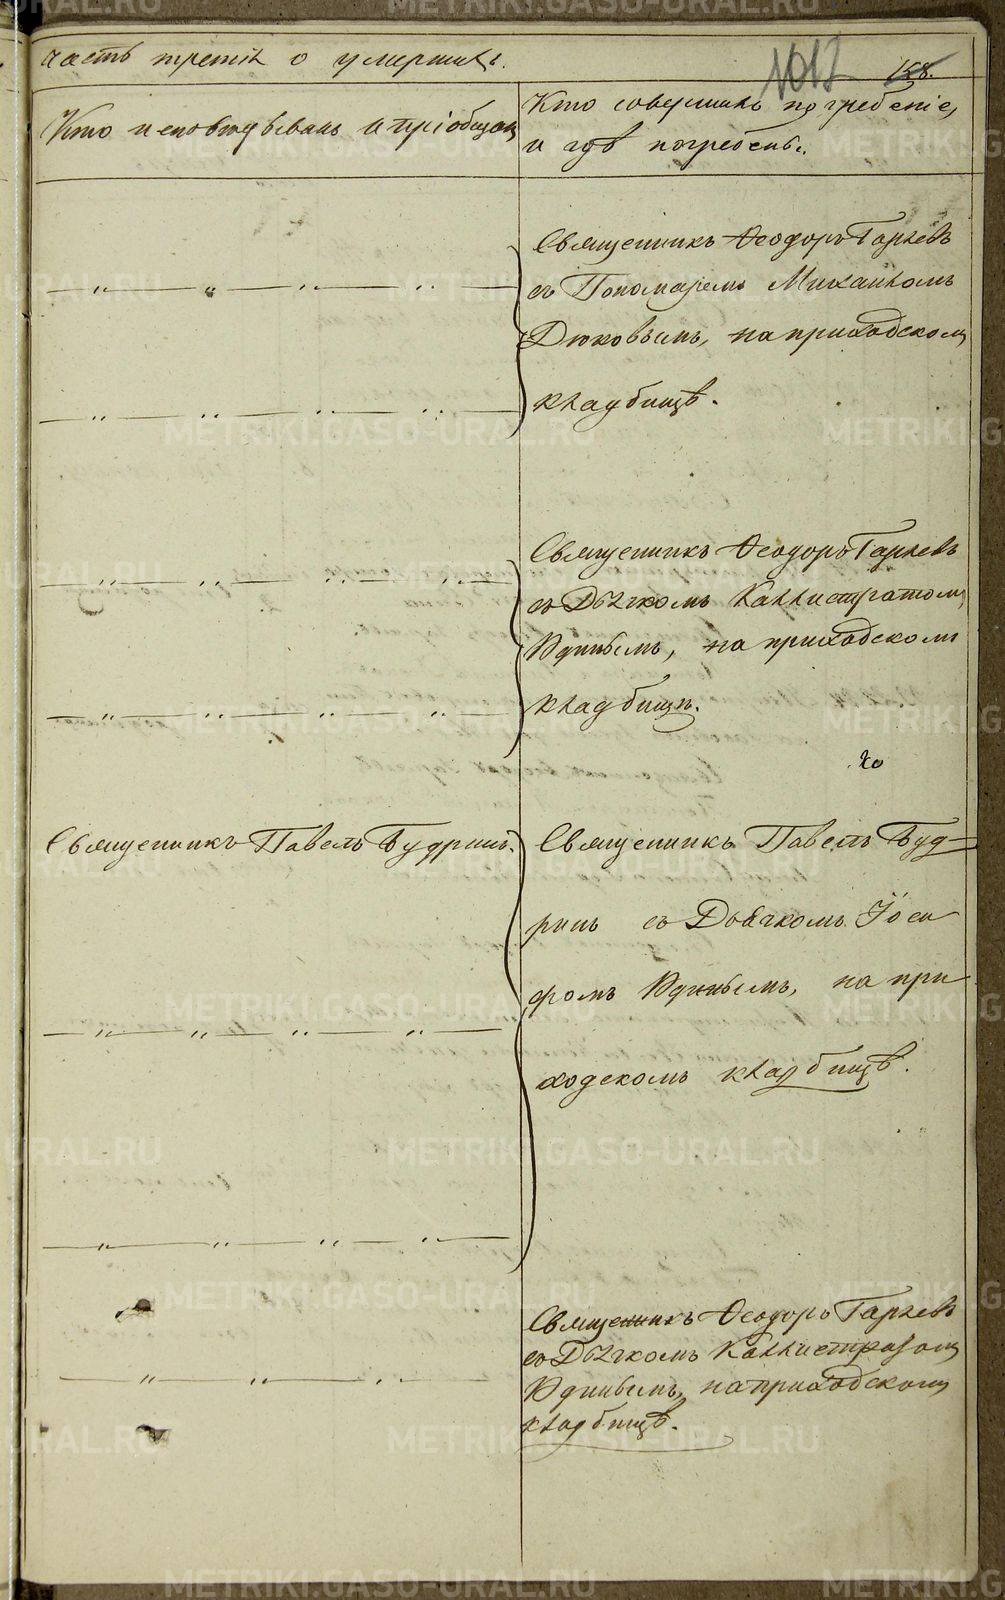 часть третія о умершихъ.
1012
158.
Кто исповѣдывалъ и пріобщалъ
Кто совершилъ погребеніе,
и гдѣ погребены.
Священникъ Ѳеодоръ Гаряевъ
съ Пономаремъ Михаиломъ
Дюковымъ, на приходскомъ
кладбищѣ.
Священникъ Ѳеодоръ Гаряевъ
съ Дьячкомъ Каллистратомъ
Удинымъ, на приходскомъ
кладбищѣ.
Священникъ Павелъ Будринъ.
Священникъ Павелъ Буд-
ринъ съ Дьячкомъ Іоси
фомъ Удинымъ, на при
ходскомъ кладбищѣ.
Священникъ Ѳеодоръ Гаряевъ
съ Дьячкомъ Каллистратомъ
Удинымъ, на приходскомъ
кладбищѣ.
METRIKI.GASO-URAL.RU